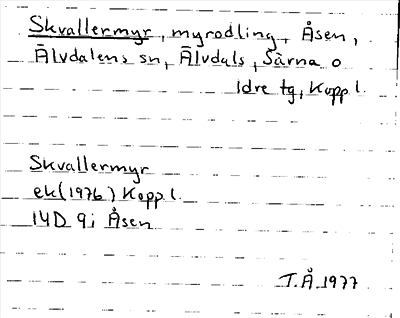 Skvallermyr, myrodling, Åsen,
Älvdalens sn, Älvdals, Särna o
Idre tg, Kopp l.
Skvallermyr
ek (1976) Kopp l.
14D 9i Åsen
T.Å. 1977